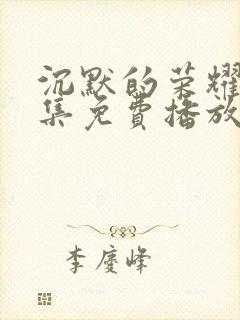 沉默的荣耀
集免费播放
李慶峰